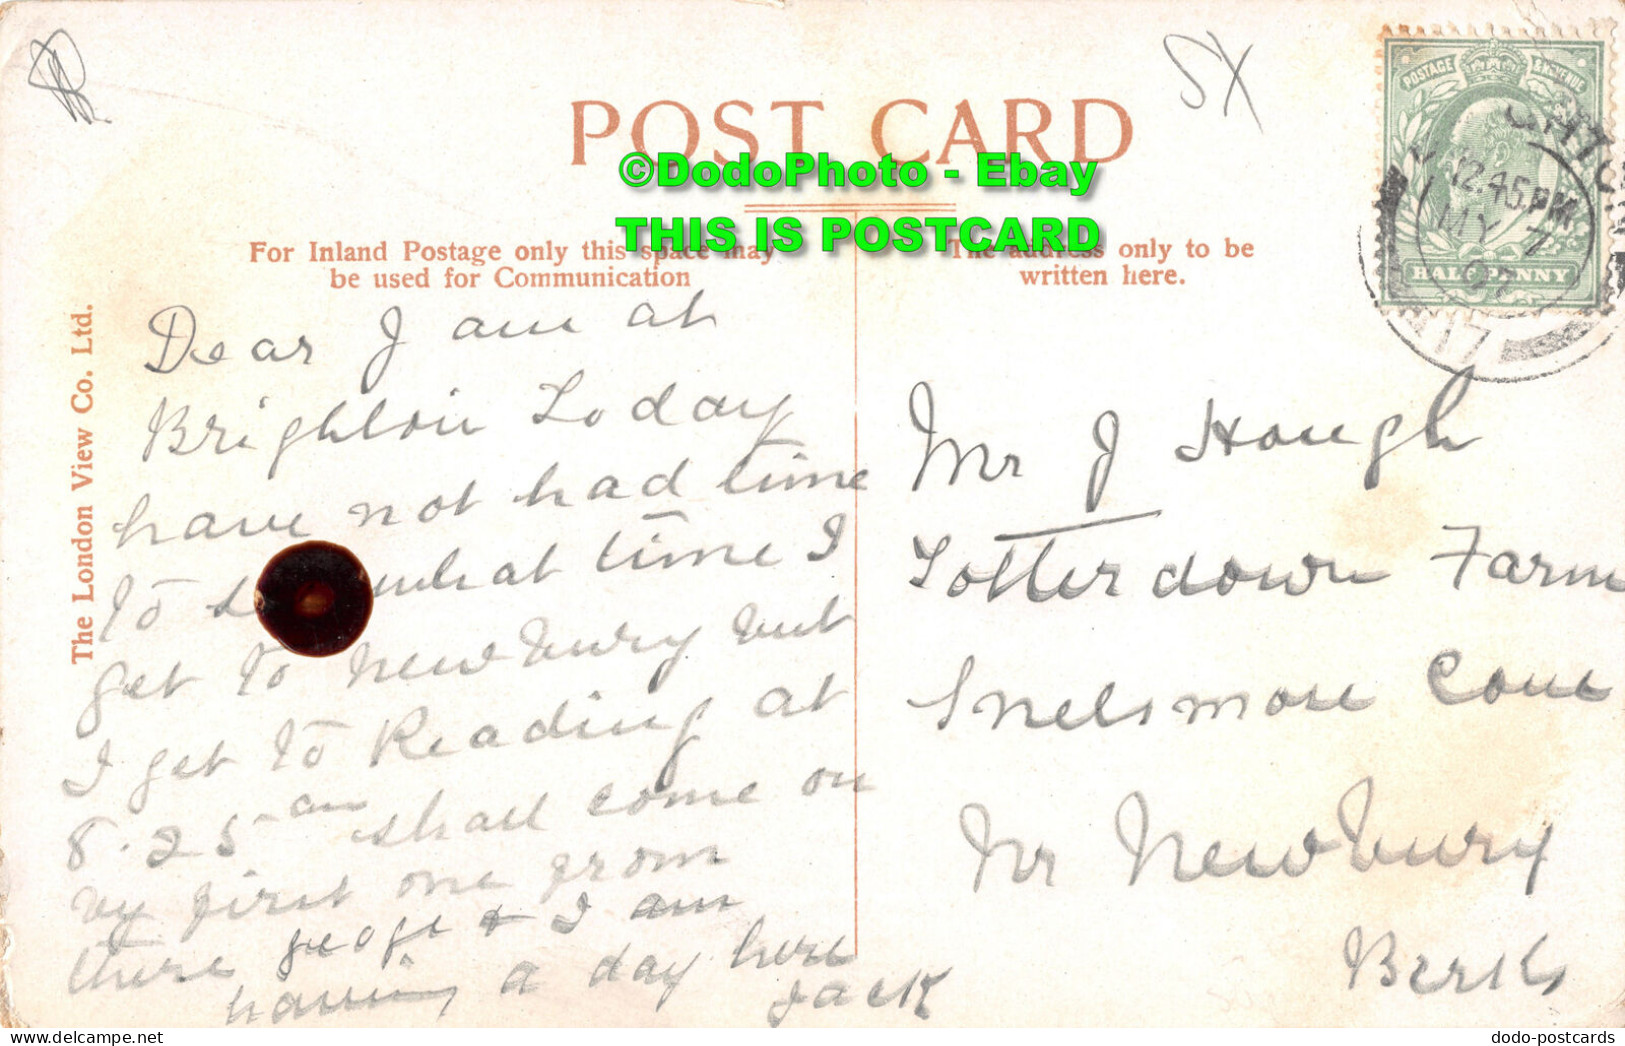 SX
POST CARD
©DodoPhoto - Ebay
THIS IS POSTCARD
POSTAGE REVENUE
HALF PENNY
12.45.PM
MY 7
07
17
For Inland Postage only this space may
be used for Communication
The address only to be
written here.
The London View Co. Ltd.
Dear I am at
Brighton Today
have not had time
To what time I
get To Newbury but
I get To Reading at
8.25 am shall come on
by first one from
there George & I am
having a day here
Jack
Mr J Hough
Totterdown Farm
Snelsmore Com
Nr Newbury
Berks
dodo-postcards